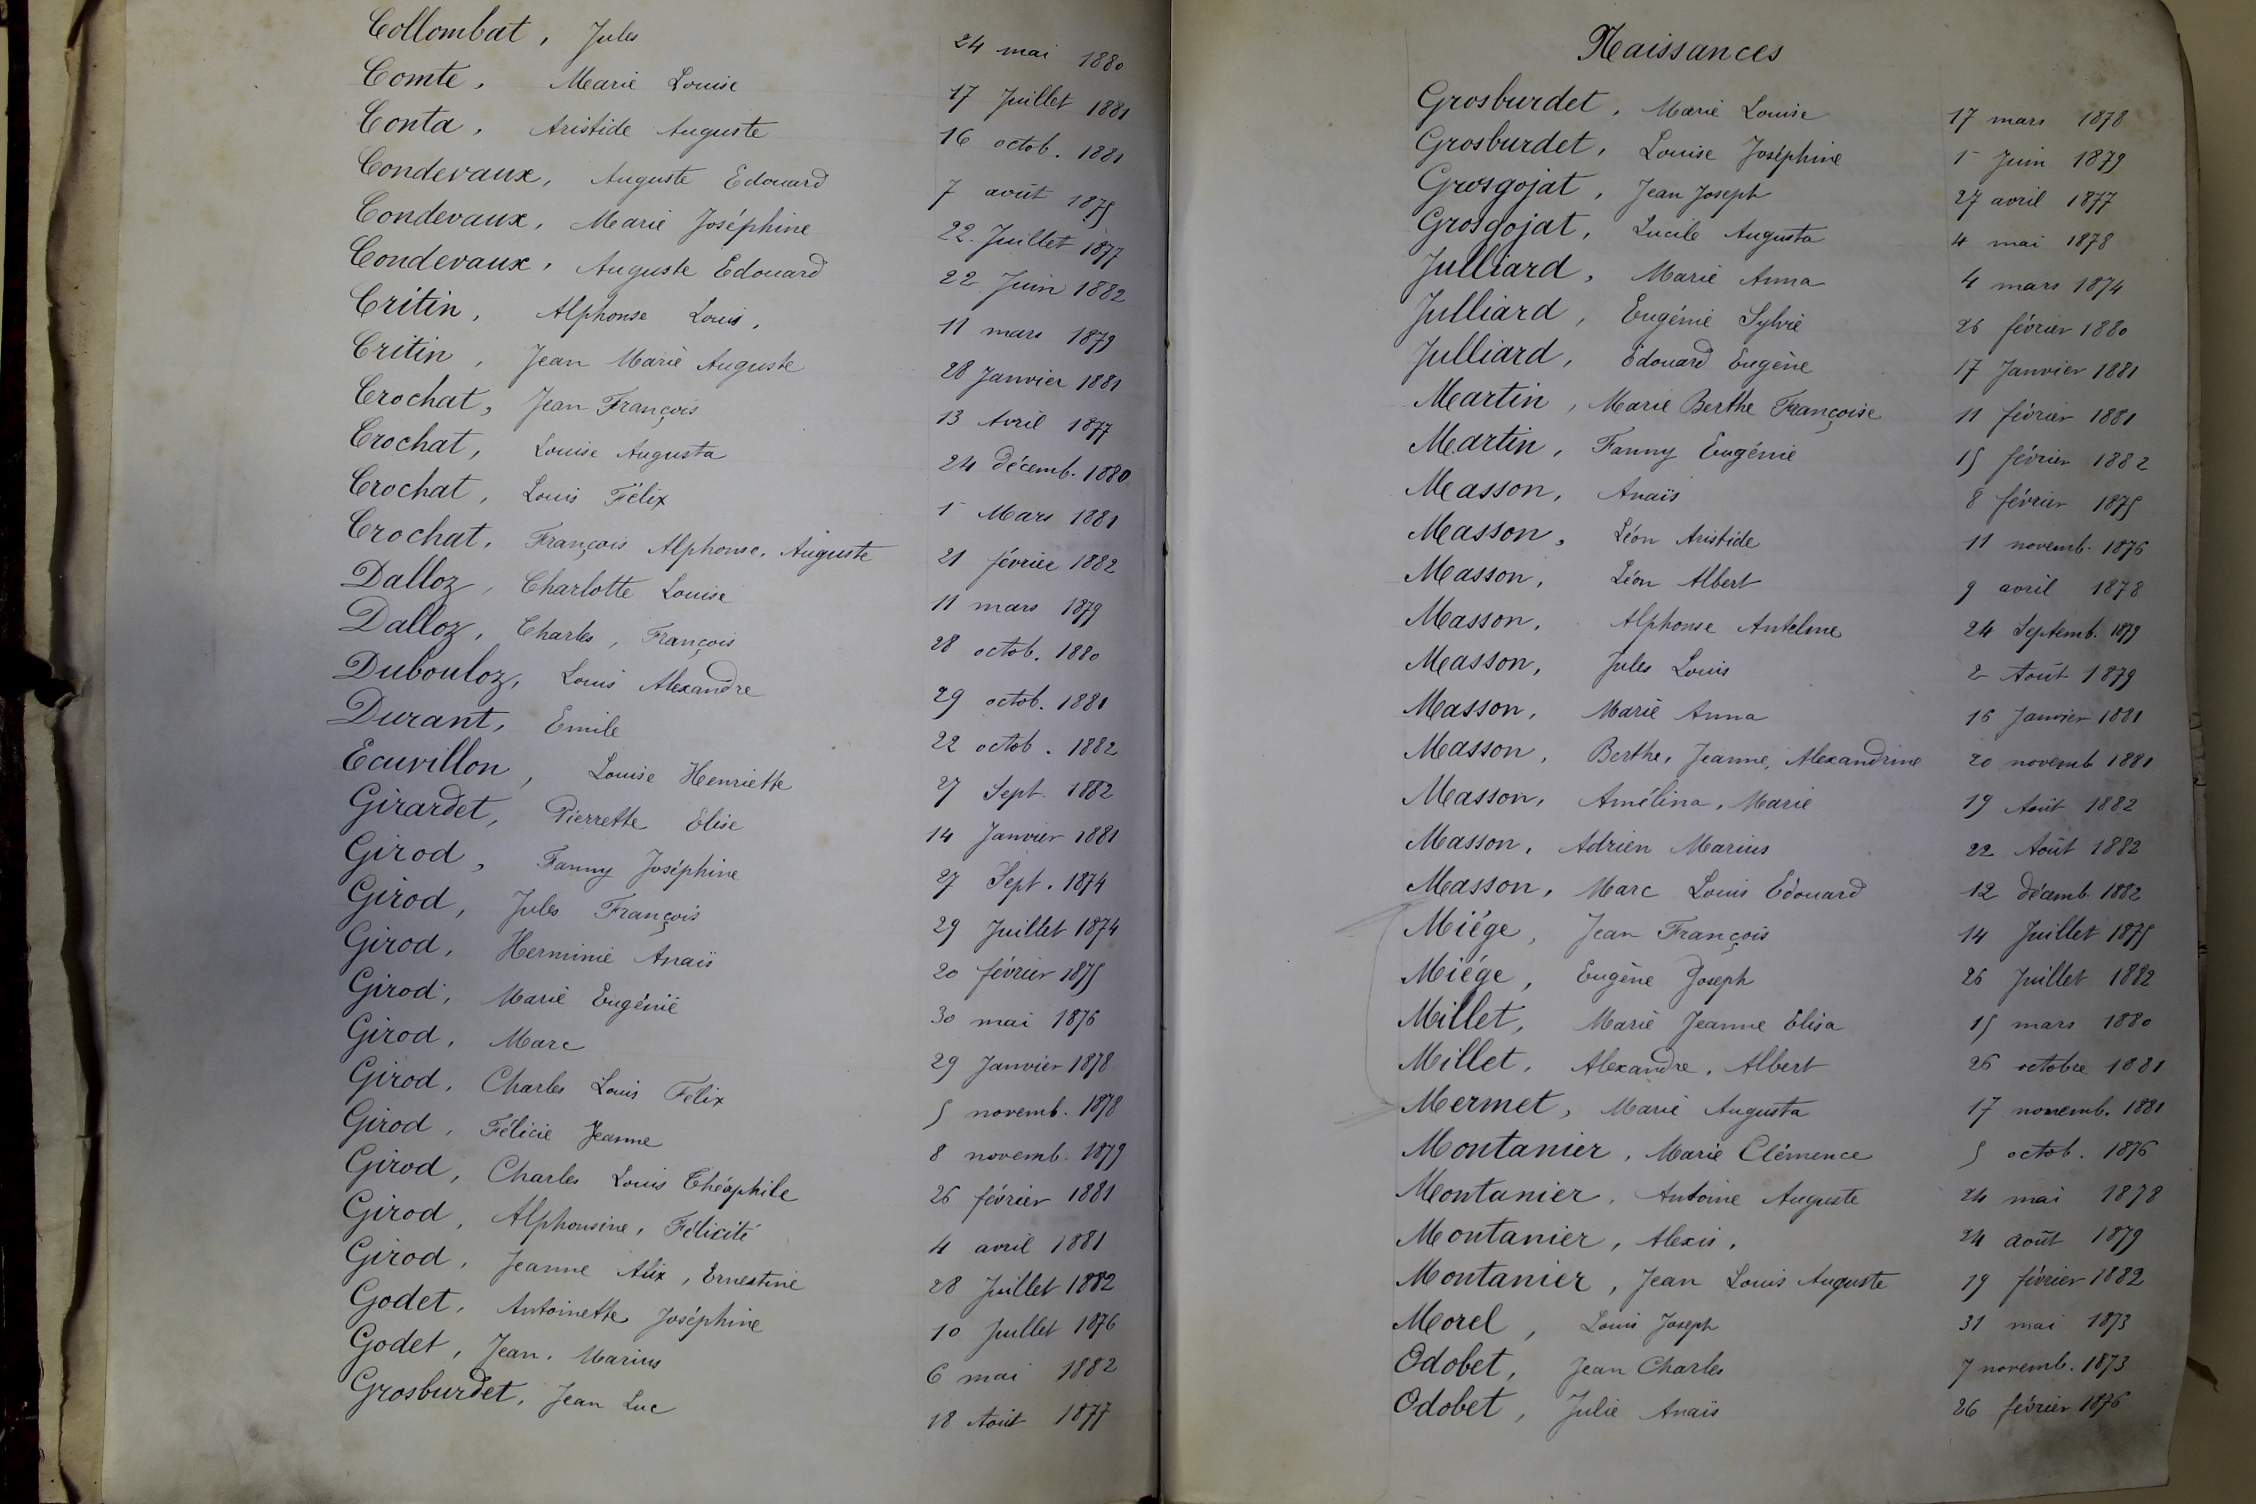 Collombat, Jules 24 mai 1880
Comte, Marie Louise 17 Juillet 1881
Conta, Aristide Auguste 16 octob. 1881
Condevaux, Auguste Edouard 7 août 1875
Condevaux, Marie Joséphine 22. Juillet 1877
Condevaux, Auguste Edouard 22 Juin 1882
Critin, Alphonse Louis, 11 mars 1879
Critin, Jean Marie Auguste 28 Janvier 1881
Crochat, Jean François 13 Avril 1877
Crochat, Louise Augusta 24 décemb. 1880
Crochat, Louis Félix 1 Mars 1881
Crochat, François Alphonse, Auguste 21 février 1882
Dalloz, Charlotte Louise 11 mars 1879
Dalloz, Charles, François 28 octob. 1880
Dubouloz, Louis Alexandre 29 octob. 1881
Durant, Emile 22 octob. 1882
Ecuvillon, Louise Henriette 27 Sept. 1882
Girardet, Pierrette Elise 14 Janvier 1881
Girod, Fanny Joséphine 27 Sept. 1874
Girod, Jules François 29 Juillet 1874
Girod, Herminie Anaïs 20 février 1875
Girod, Marie Eugénie 30 mai 1876
Girod, Marc 29 Janvier 1878
Girod, Charles Louis Félix 5 novemb. 1878
Girod, Félicie Jeanne 8 novemb. 1879
Girod, Charles Louis Théophile 26 février 1881
Girod, Alphonsine, Félicité 4 avril 1881
Girod, Jeanne Alix, Ernestine 28 Juillet 1882
Godet, Antoinette Joséphine 10 Juillet 1876
Godet, Jean, Marius 6 mai 1882
Grosburdet, Jean Luc 18 Août 1877
Naissances
Grosburdet, Marie Louise 17 mars 1878
Grosburdet, Louise Joséphine 1 Juin 1879
Grosgojat, Jean Joseph 27 avril 1877
Grosgojat, Lucile Augusta 4 mai 1878
Julliard, Marie Anna 4 mars 1874
Julliard, Eugénie Sylvie 26 février 1880
Julliard, Edouard Eugène 17 Janvier 1881
Martin, Marie Berthe Françoise 11 février 1881
Martin, Fanny Eugénie 15 février 1882
Masson, Anaïs 8 février 1875
Masson, Léon Aristide 11 novemb. 1876
Masson, Léon Albert 9 avril 1878
Masson, Alphonse Antelme 24 Septemb. 1879
Masson, Jules Louis 2 Août 1879
Masson, Marie Anna 16 Janvier 1881
Masson, Berthe, Jeanne, Alexandrine 20 novemb 1881
Masson, Amélina, Marie 19 Août 1882
Masson, Adrien Marius 22 Août 1882
Masson, Marc Louis Edouard 12 décemb. 1882
Miége, Jean François 14 Juillet 1875
Miége, Eugène Joseph 26 Juillet 1882
Millet, Marie Jeanne Elisa 15 mars 1880
Millet, Alexandre, Albert 26 octobre 1881
Mermet, Marie Augusta 17 novemb. 1881
Montanier, Marie Clémence 5 octob. 1876
Montanier, Antoine Auguste 24 mai 1878
Montanier, Alexis, 24 août 1879
Montanier, Jean Louis Auguste 19 février 1882
Morel, Louis Joseph 31 mai 1873
Odobet, Jean Charles 7 novemb. 1873
Odobet, Julie Anaïs 26 février 1876